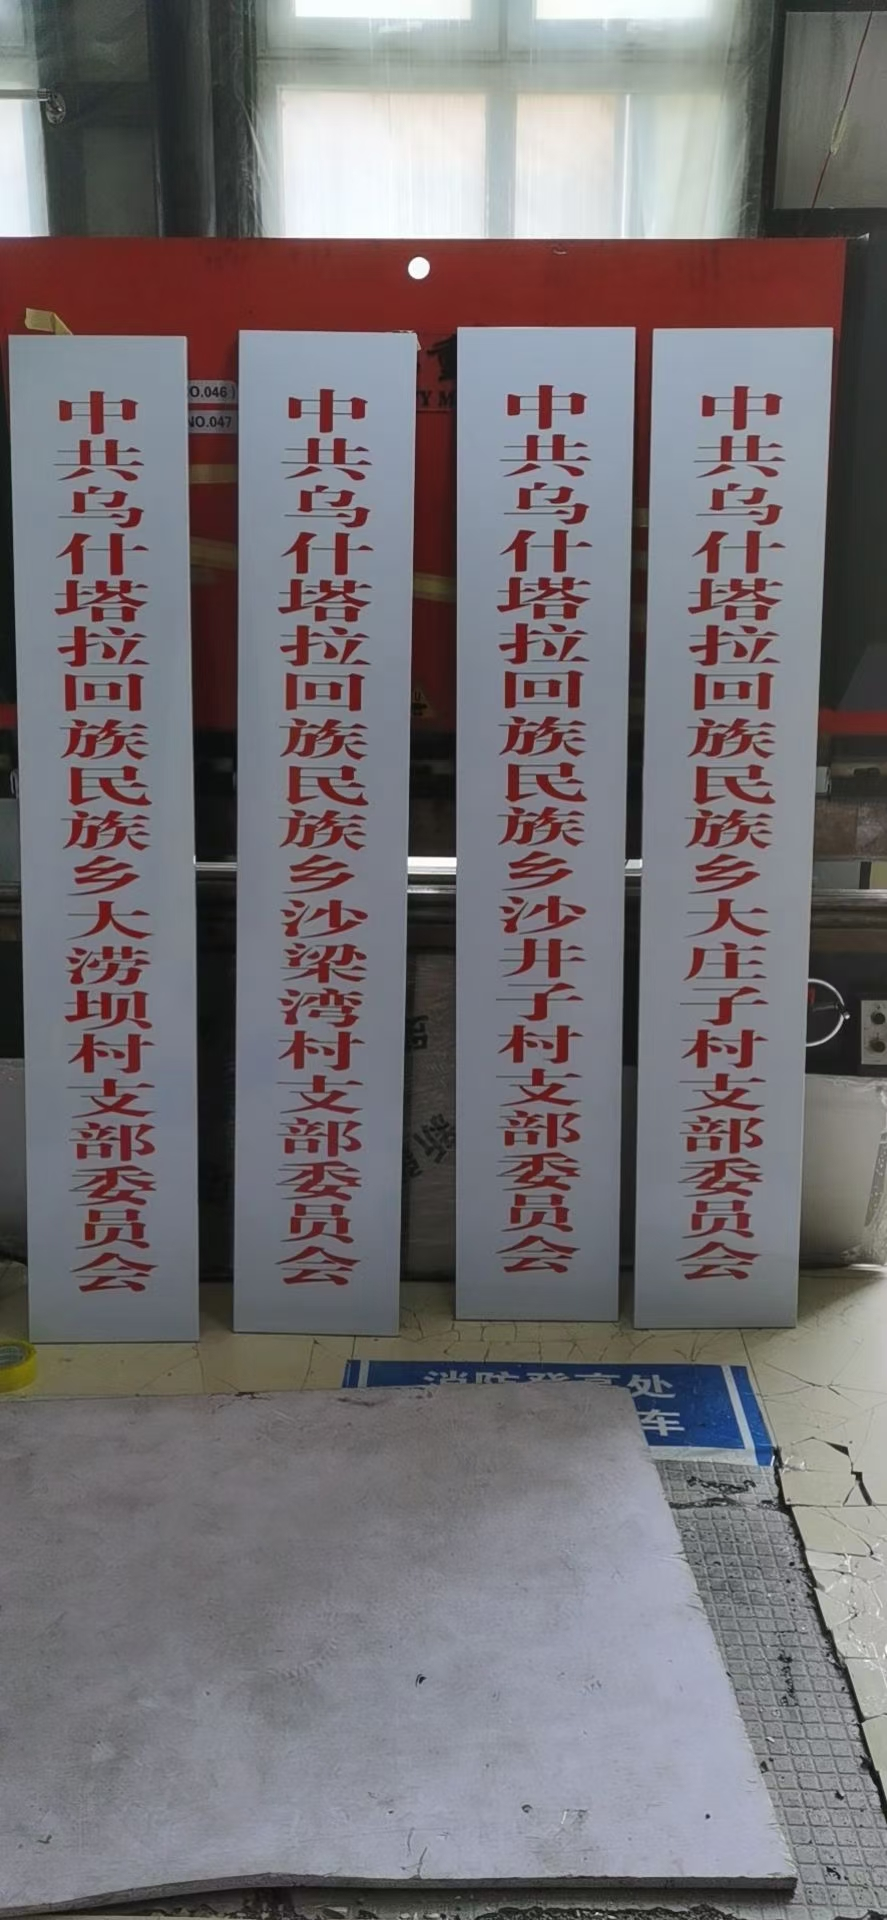 中共乌什塔拉回族民族乡大涝坝村支部委员会
中共乌什塔拉回族民族乡沙梁湾村支部委员会
中共乌什塔拉回族民族乡沙井子村支部委员会
中共乌什塔拉回族民族乡大庄子村支部委员会
O.046)
NO.047
TY M
消防登高处
车